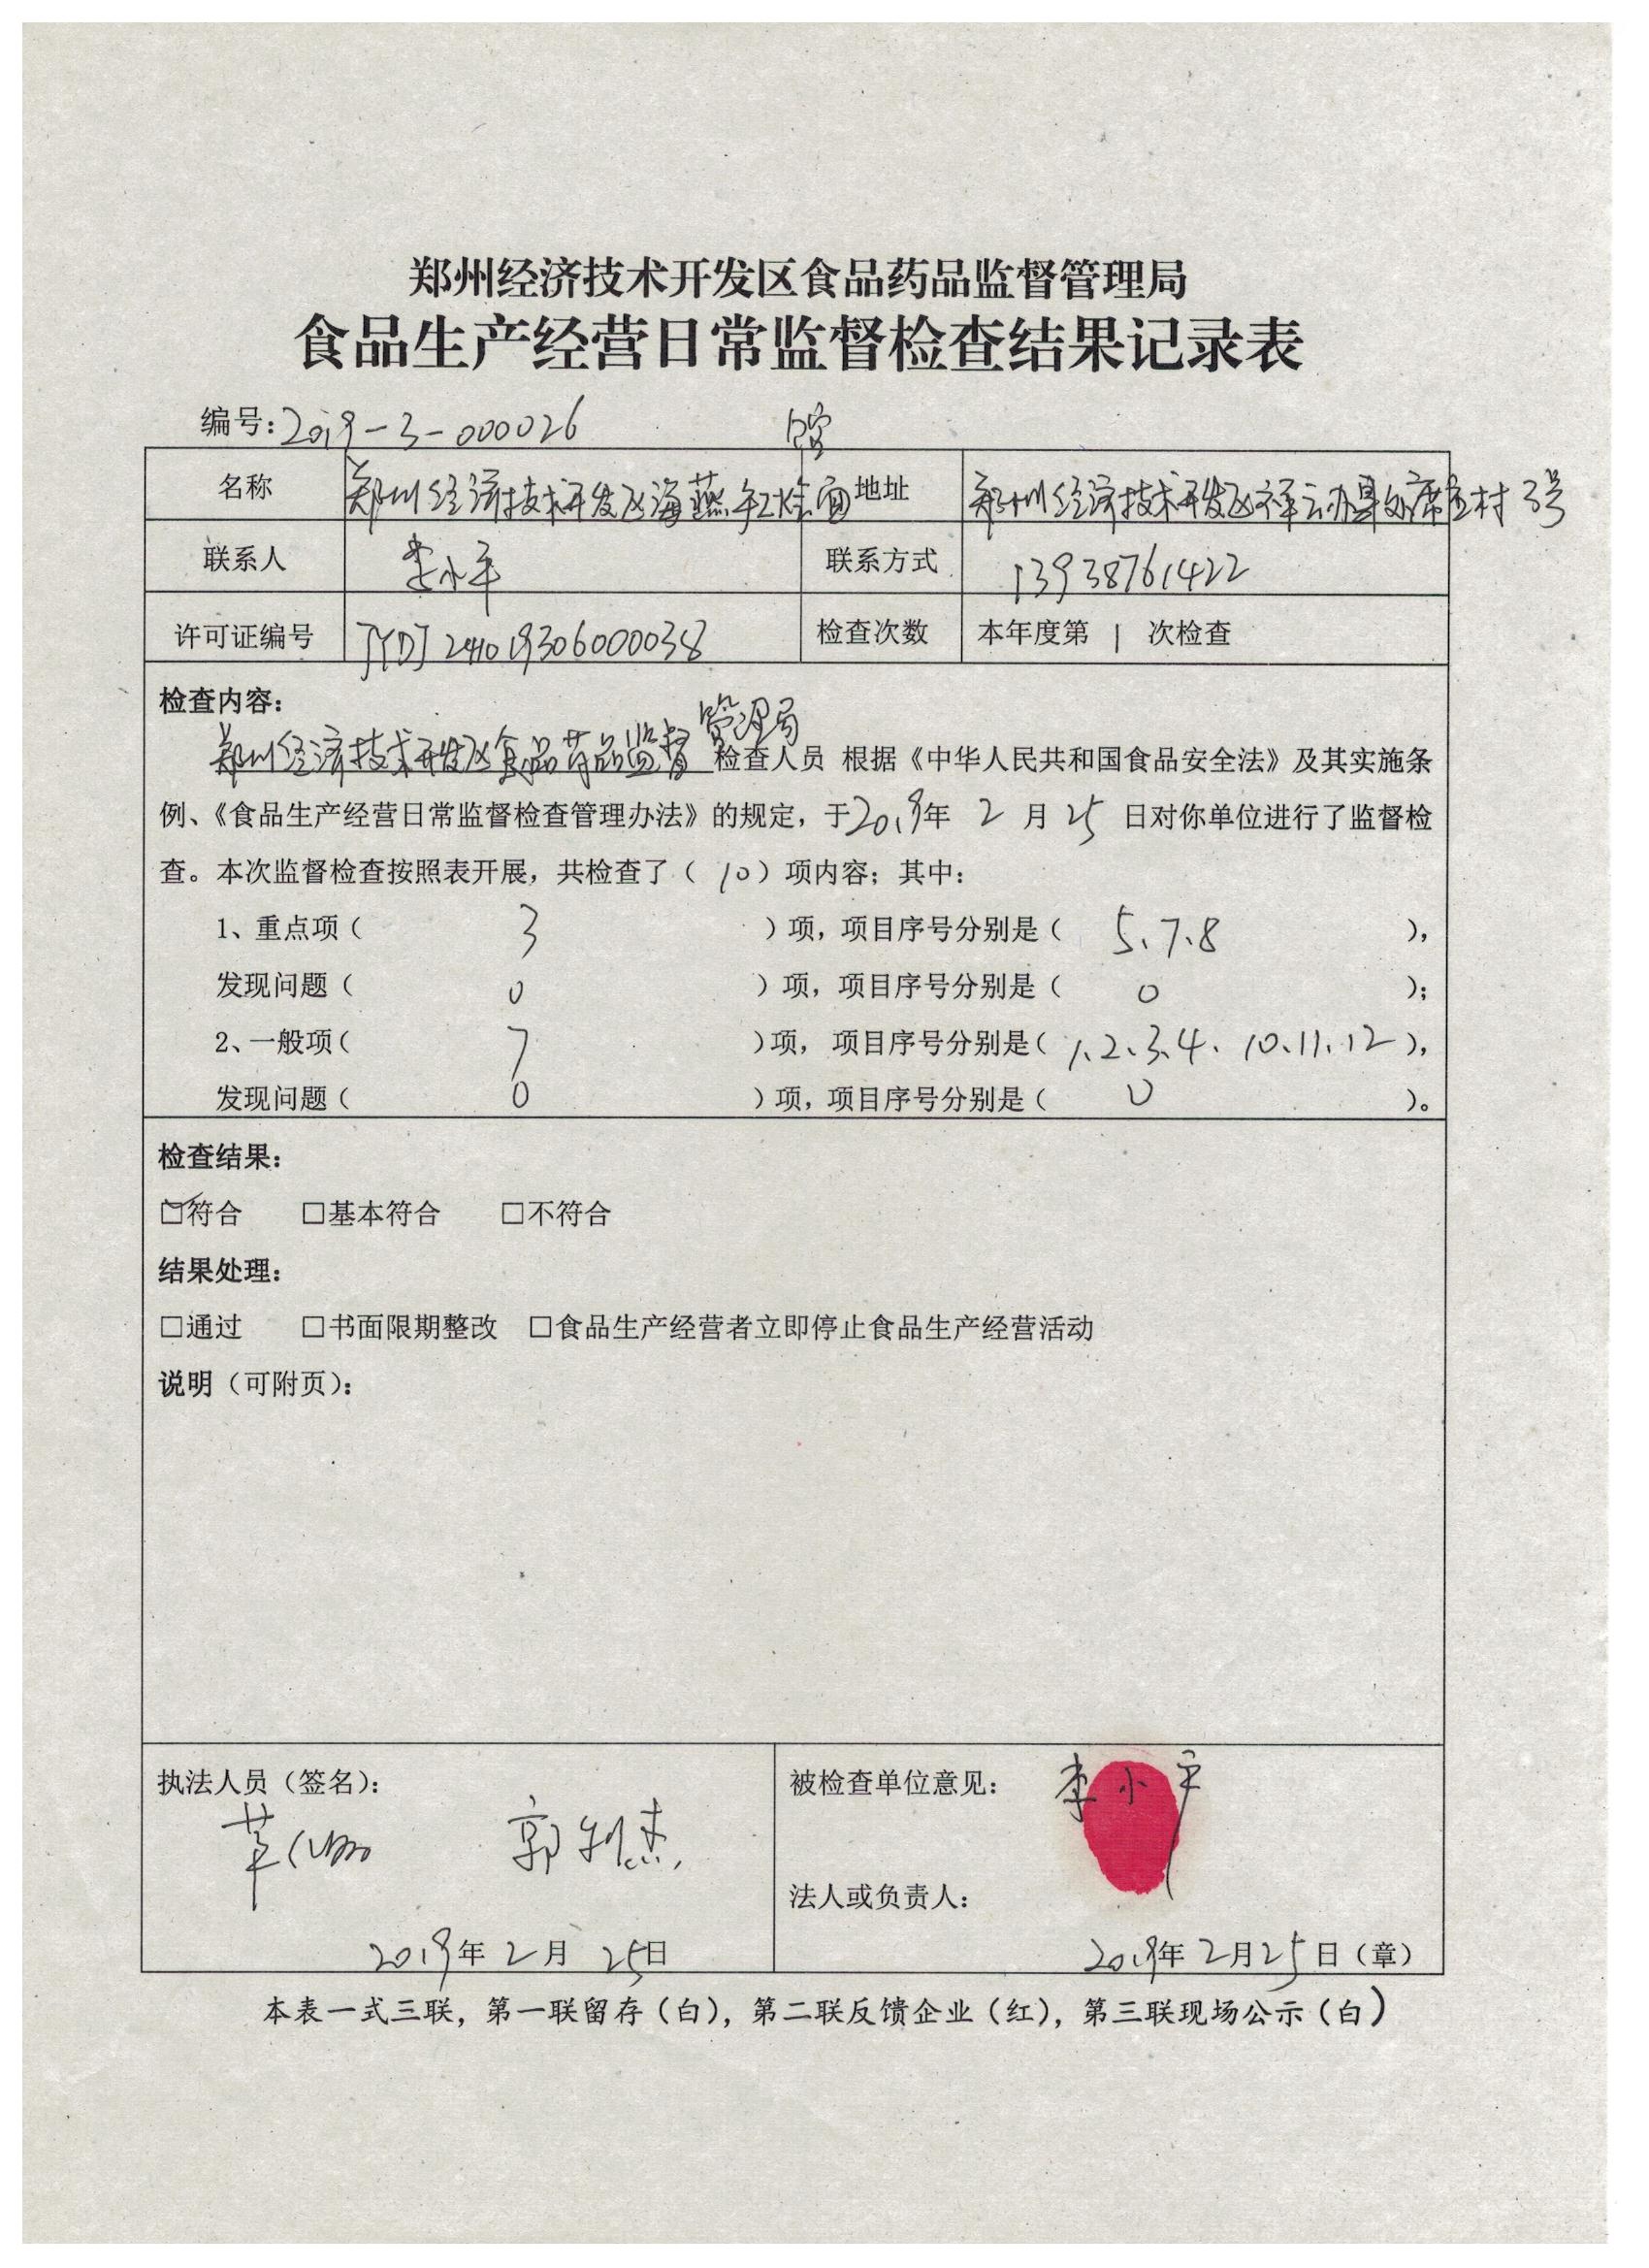 郑州经济技术开发区食品药品监督管理局
食品生产经营日常监督检查结果记录表
编号:2019-3-000026
名称 郑州经济技术开发区海燕手工烩面馆 地址 郑州经济技术开发区祥云办事处席庄村3号
联系人 李小平 联系方式 13938761422
许可证编号 JYDJ24101930600038 检查次数 本年度第 1 次检查
检查内容:
郑州经济技术开发区食品药品监督管理局检查人员 根据《中华人民共和国食品安全法》及其实施条
例、《食品生产经营日常监督检查管理办法》的规定,于2019年 2 月 25 日对你单位进行了监督检
查。本次监督检查按照表开展,共检查了( 10 )项内容;其中:
1、重点项( 3 )项,项目序号分别是( 5、7、8 ),
发现问题( 0 )项,项目序号分别是( 0 );
2、一般项( 7 )项,项目序号分别是( 1、2、3、4、10、11、12 ),
发现问题( 0 )项,项目序号分别是( 0 )。
检查结果:
☑符合 □基本符合 □不符合
结果处理:
□通过 □书面限期整改 □食品生产经营者立即停止食品生产经营活动
说明(可附页):
执法人员(签名): 被检查单位意见: 李小平
郭利杰
法人或负责人:
2019年 2月 25日 2019年 2月 25日(章)
本表一式三联,第一联留存(白),第二联反馈企业(红),第三联现场公示(白)